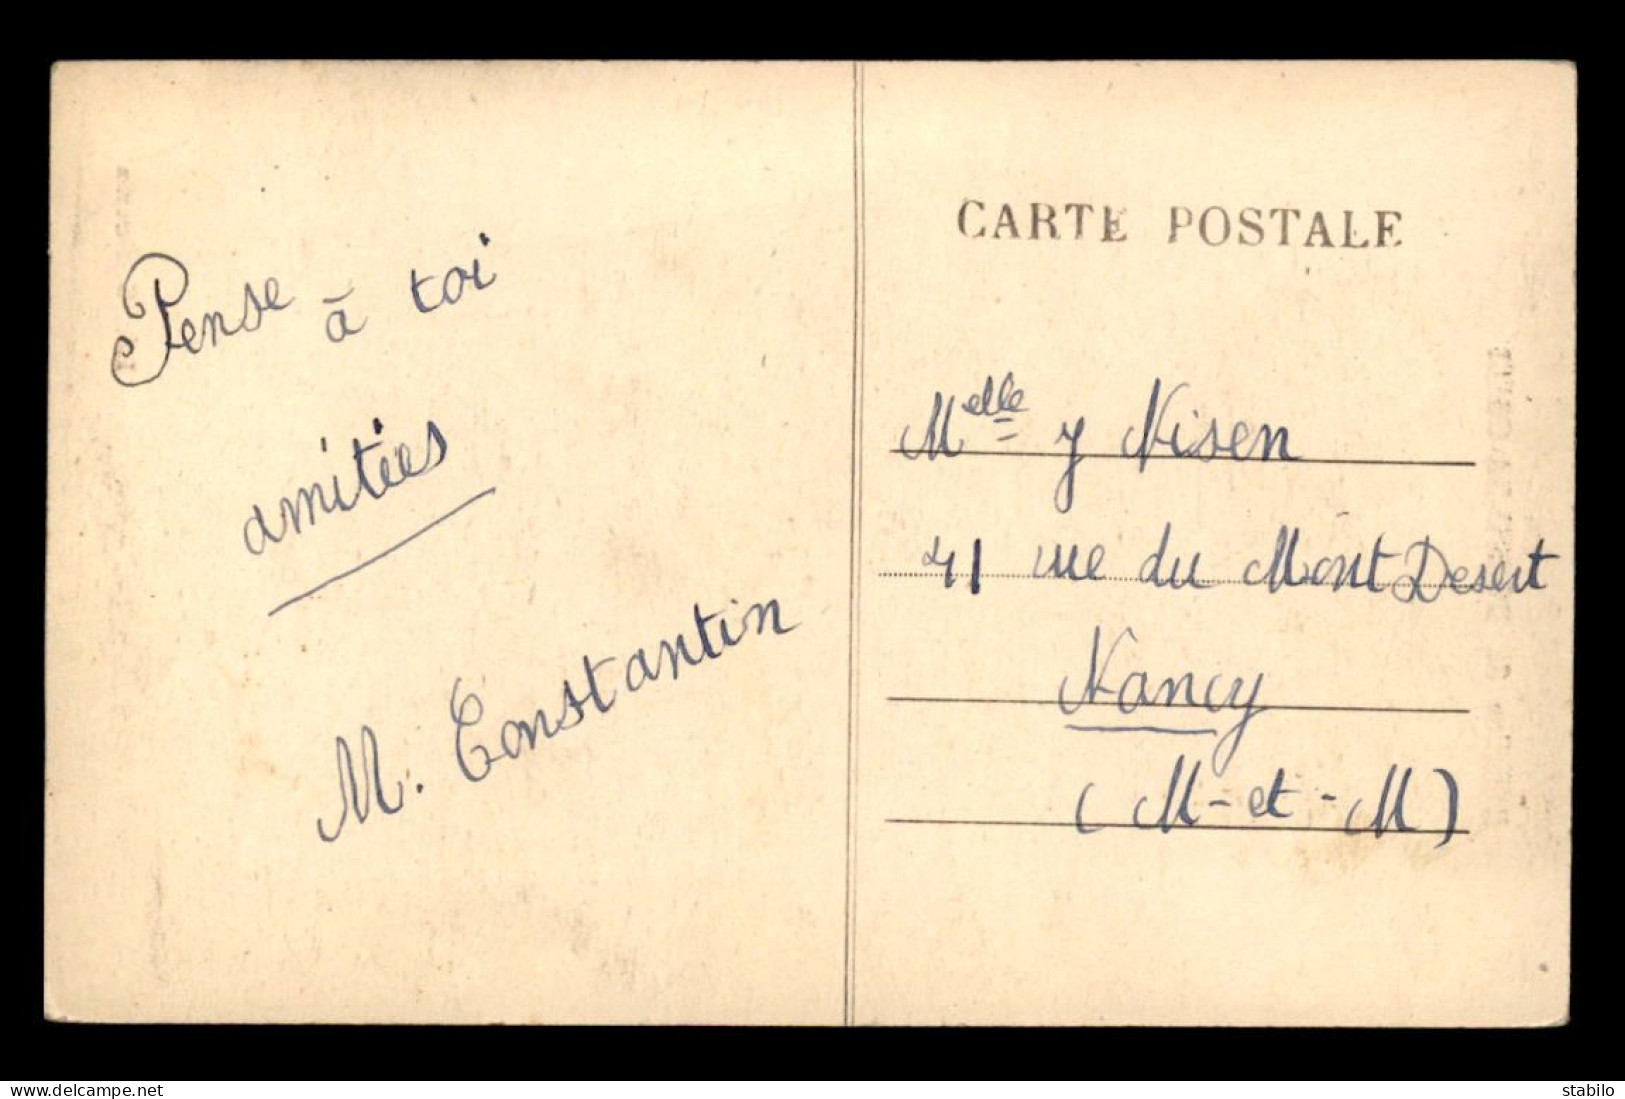 Pense à toi
amitiées
M. Constantin
CARTE POSTALE
Melle y Nisen
41 rue du Mont Desert
Nancy
(M-et-M)
www.delcampe.net
stabilo